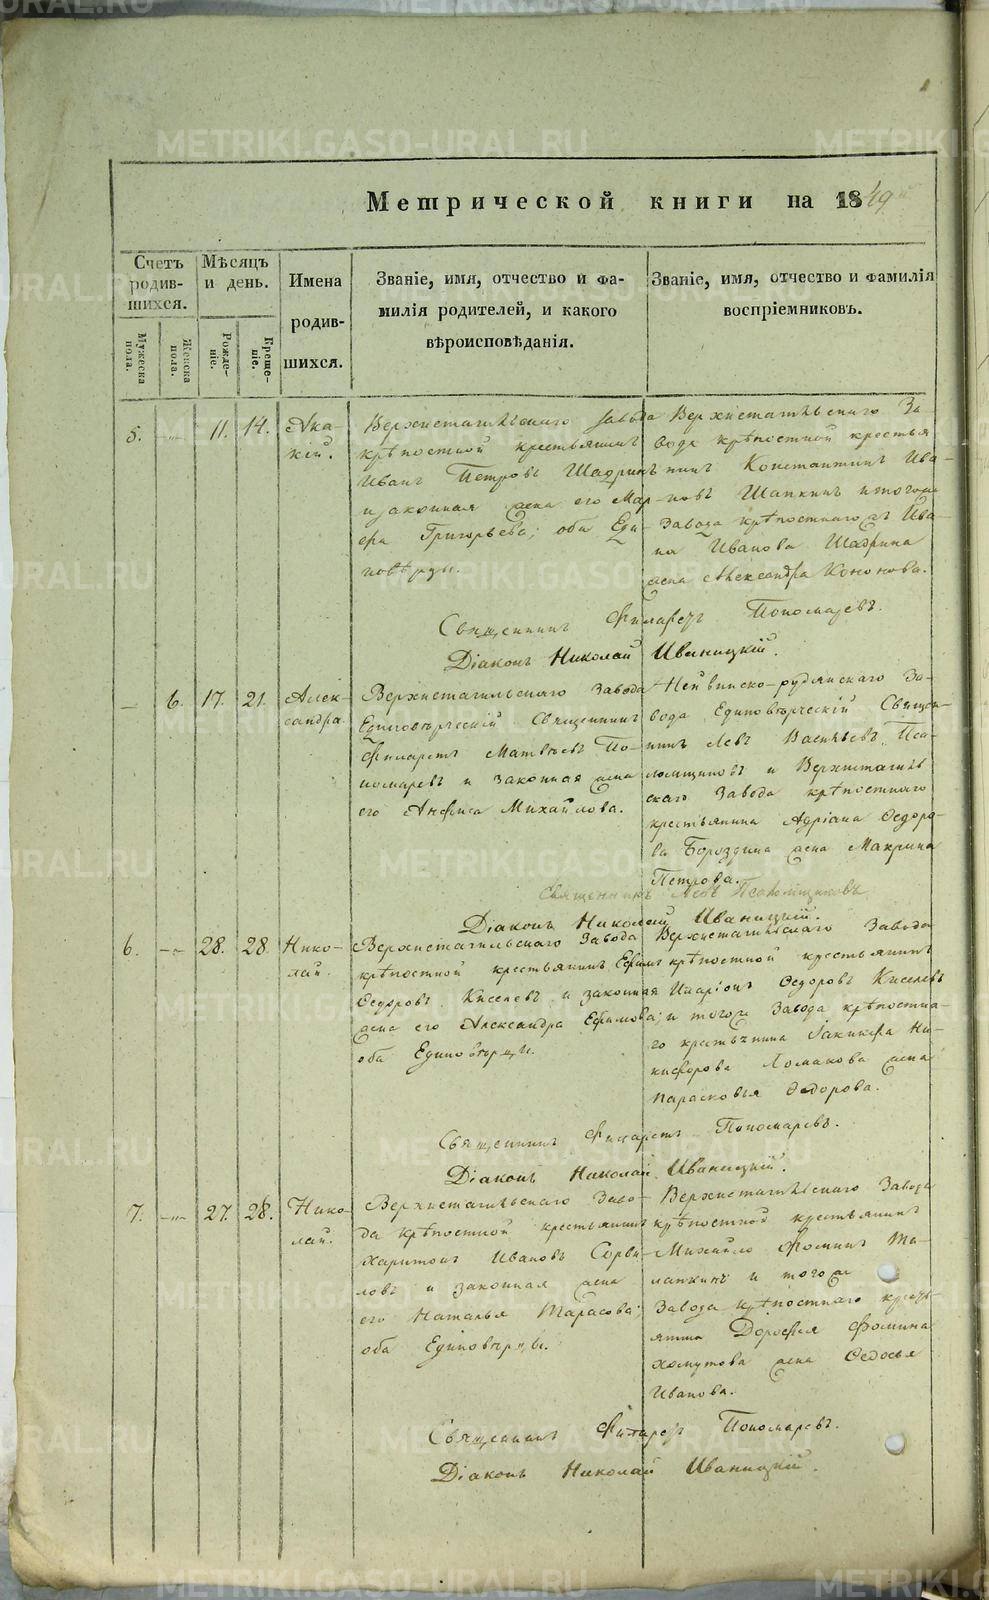 Метрической книги на 1849
Счетъ родив-шихся.
Мужеска пола.
Женска пола.
Мѣсяцъ и день.
Рожде-ніе.
Креще-ніе.
Имена родив-шихся.
Званіе, имя, отчество и фа-
милія родителей, и какого
вѣроисповѣданія.
Званіе, имя, отчество и фамилія
воспріемниковъ.
5. 11. 14. Ака-
кій.
Верхнетагильскаго завода
крѣпостной крестьянинъ
Иванъ Петровъ Шадринъ
и законная жена его Мар-
фа Григорьева; оба Еди-
новѣрцы.
Верхнетагильскаго За
вода крѣпостной крестья
нинъ Константинъ Ива-
новъ Шапкинъ и тогоже
Завода крѣпостнаго Ива-
на Иванова Шадрина
жена Александра Кононова.
Священникъ Филаретъ Пономаревъ.
Діаконъ Николай Иваницкій.
6. 17. 21. Алек-
сандра.
Верхнетагильскаго Завода
Единовѣрческій Священникъ
Филаретъ Матвѣевъ По-
номаревъ и законная жена
его Анфиса Михайлова.
Нейвинско-рудянскаго За-
вода Единовѣрческій Священ-
никъ Левъ Васильевъ Пса-
ломщиковъ и Верхнетагиль
скаго Завода крѣпостнаго
крестьянина Адріана Ѳедоро-
ва Бороздина жена Макрина
Петрова.
Священникъ Левъ Псаломщиковъ
Діаконъ Николай Иваницкій.
6. 28. 28. Нико-
лай.
Верхнетагильскаго Завода
крѣпостной крестьянинъ Ефимъ
Ѳедоровъ Киселевъ и законная
жена его Александра Ефимова;
оба Единовѣрцы.
Верхнетагильскаго Завода
крѣпостной крестьянинъ
Иларіонъ Ѳедоровъ Киселевъ
и тогоже Завода крѣпостна-
го крестьянина Іакинфа Ни-
кифорова жена
Парасковья Ѳедорова.
Священникъ Филаретъ Пономаревъ.
Діаконъ Николай Иваницкій.
7. 27. 28. Нико-
лай.
Верхнетагильскаго Заво-
да крѣпостной крестьянинъ
Харитонъ Ивановъ
и законная жена
его Наталья Тарасова;
оба Единовѣрцы.
Верхнетагильскаго Завода
крѣпостной крестьянинъ
Михайло Фоминъ
и тогоже
Завода крѣпостнаго кресть-
янина Дорофея Фомина
Хомутова жена Ѳедосья
Иванова.
Священникъ Филаретъ Пономаревъ.
Діаконъ Николай Иваницкій.
METRIKI.GASO-URAL.RU